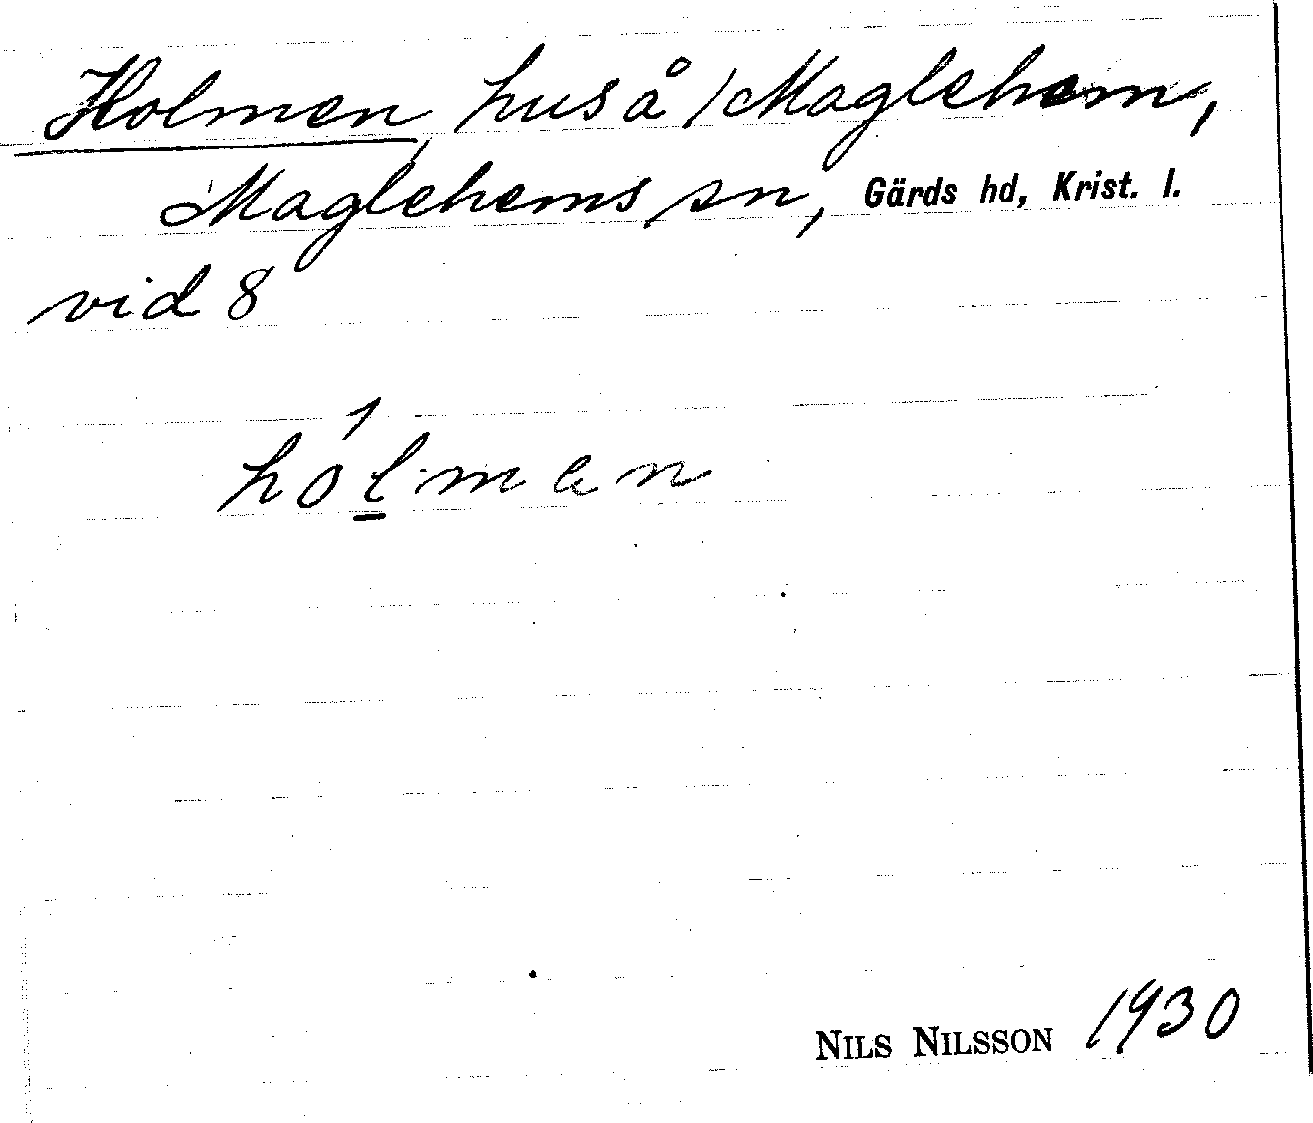 Holmen, hus å /Maglehem,
Maglehems sn, Gärds hd, Krist. l.
vid 8
hól̲man
NILS NILSSON 1930